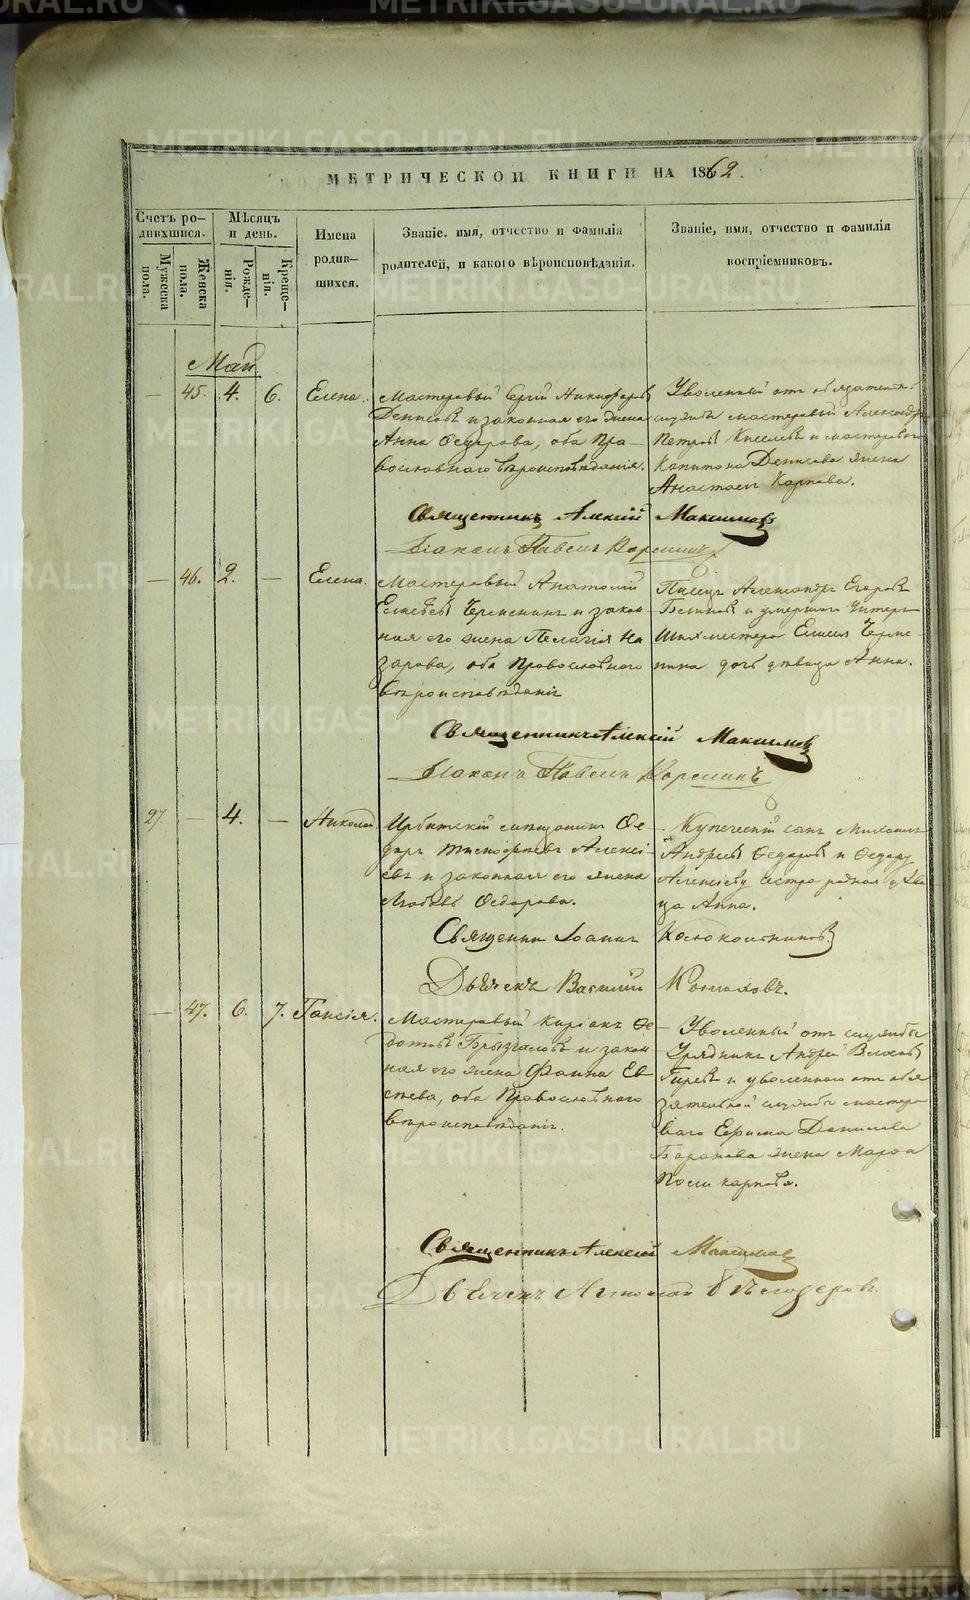 METRIKI.GASO-URAL.RU
МЕТРИЧЕСКОЙ КНИГИ НА 1862.
Счетъ ро-
дившихся.
Мужеска
пола.
Женска
пола.
Мѣсяцъ
и день.
Рожде-
нія.
Креще-
нія.
Имена
родив-
шихся.
Званіе, имя, отчество и фамилія
родителей, и какого вѣроисповѣданія.
Званіе, имя, отчество и фамилія
воспріемниковъ.
Май
— 45. 4. 6. Елена.
Мастеровый Сергій Никифоровъ
Денисовъ и законная его жена
Анна Федорова, оба Пра-
вославнаго вѣроисповѣданія.
Уволенный отъ обязательной
службы мастеровый Александръ
Петровъ Киселевъ и мастероваго
Капитона Денисова жена
Анастасія Карпова.
Священникъ Алексій Максимовъ
Діаконъ Павелъ
— 46. 2. — Елена.
Мастеровый Анатолій
Елисѣевъ и закон
ная его жена Пелагія На
зарова, оба Православнаго
вѣроисповѣданія
Писецъ Александръ Егоровъ
и умершаго Унтеръ
Шихтмейстера Елисея
дочь дѣвица Анна.
Священникъ Алексій Максимовъ
Діаконъ Павелъ
27. — 4. — Николай
Ирбитскій мѣщанинъ Ѳе-
доръ Тимофѣевъ Алексѣ-
евъ и законная его жена
Любовь Ѳедорова.
Купеческій сынъ Михаилъ
Андреевъ Ѳедоровъ и Ѳедору
Алексѣеву сестра родная дѣви
ца Анна.
Священникъ Іоаннъ
Дьячекъ Василій
— 47. 6. 7. Таисія.
Мастеровый Киріакъ Ѳе
дотовъ и закон
ная его жена Фаина Ев
сѣева, оба Православнаго
вѣроисповѣданія.
Уволенный отъ службы
Урядникъ Андрей Власовъ
и уволеннаго отъ обя
зательной службы мастеро
ваго Ефима Данилова
Баранова жена Марѳа
Поликарпова.
Священникъ Алексій Максимовъ
Дьячекъ